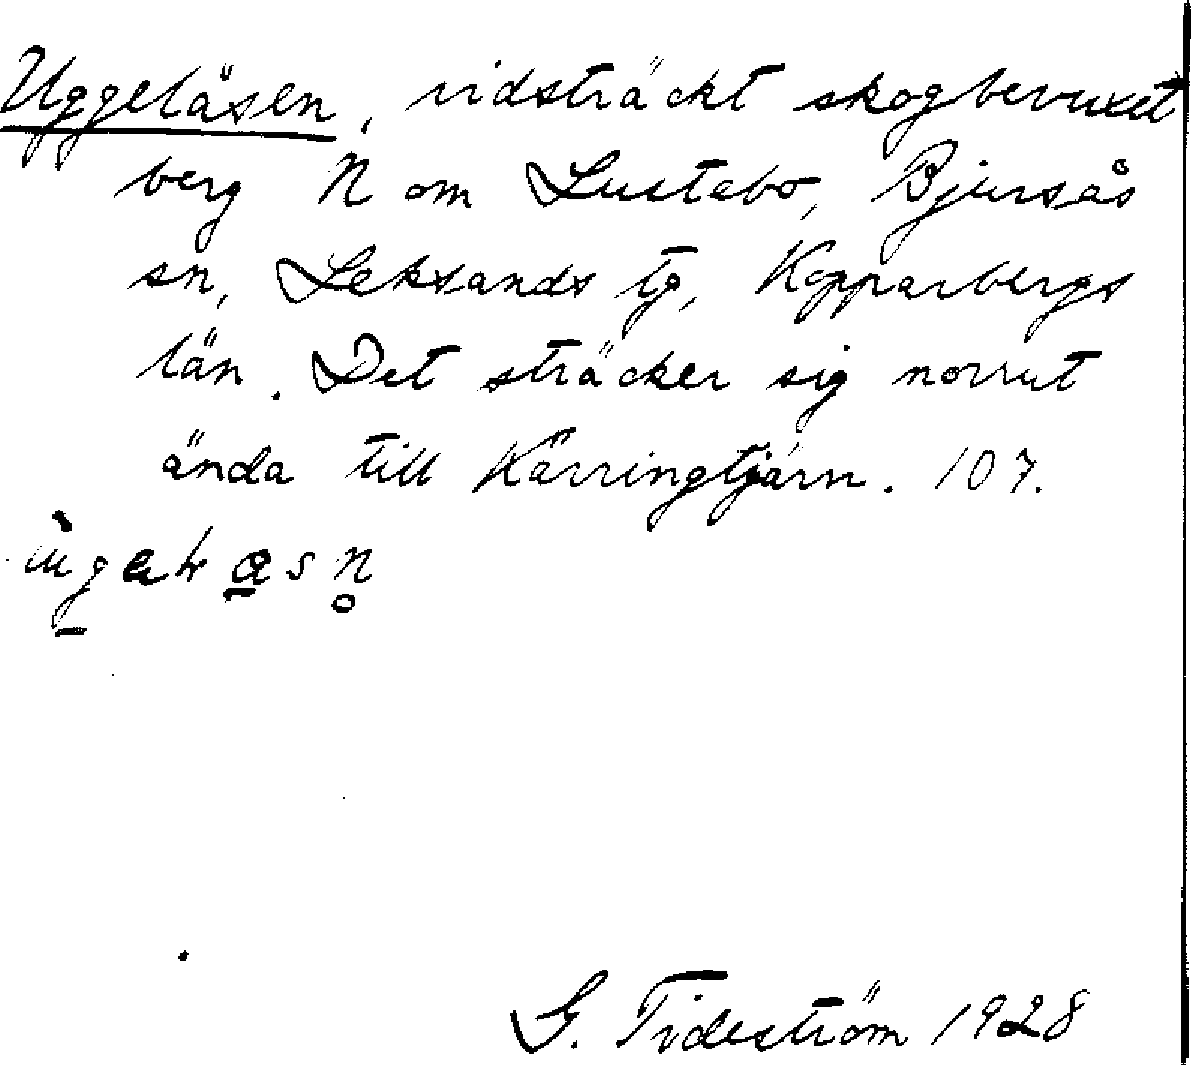 Uggeläsen, vidsträckt skogbevuxet
berg N om Lustebo, Bjursås
sn, Leksands tg, Kopparbergs
län. Det sträcker sig norrut
ända till Kärringtjärn. 107.
G. Tideström 1928